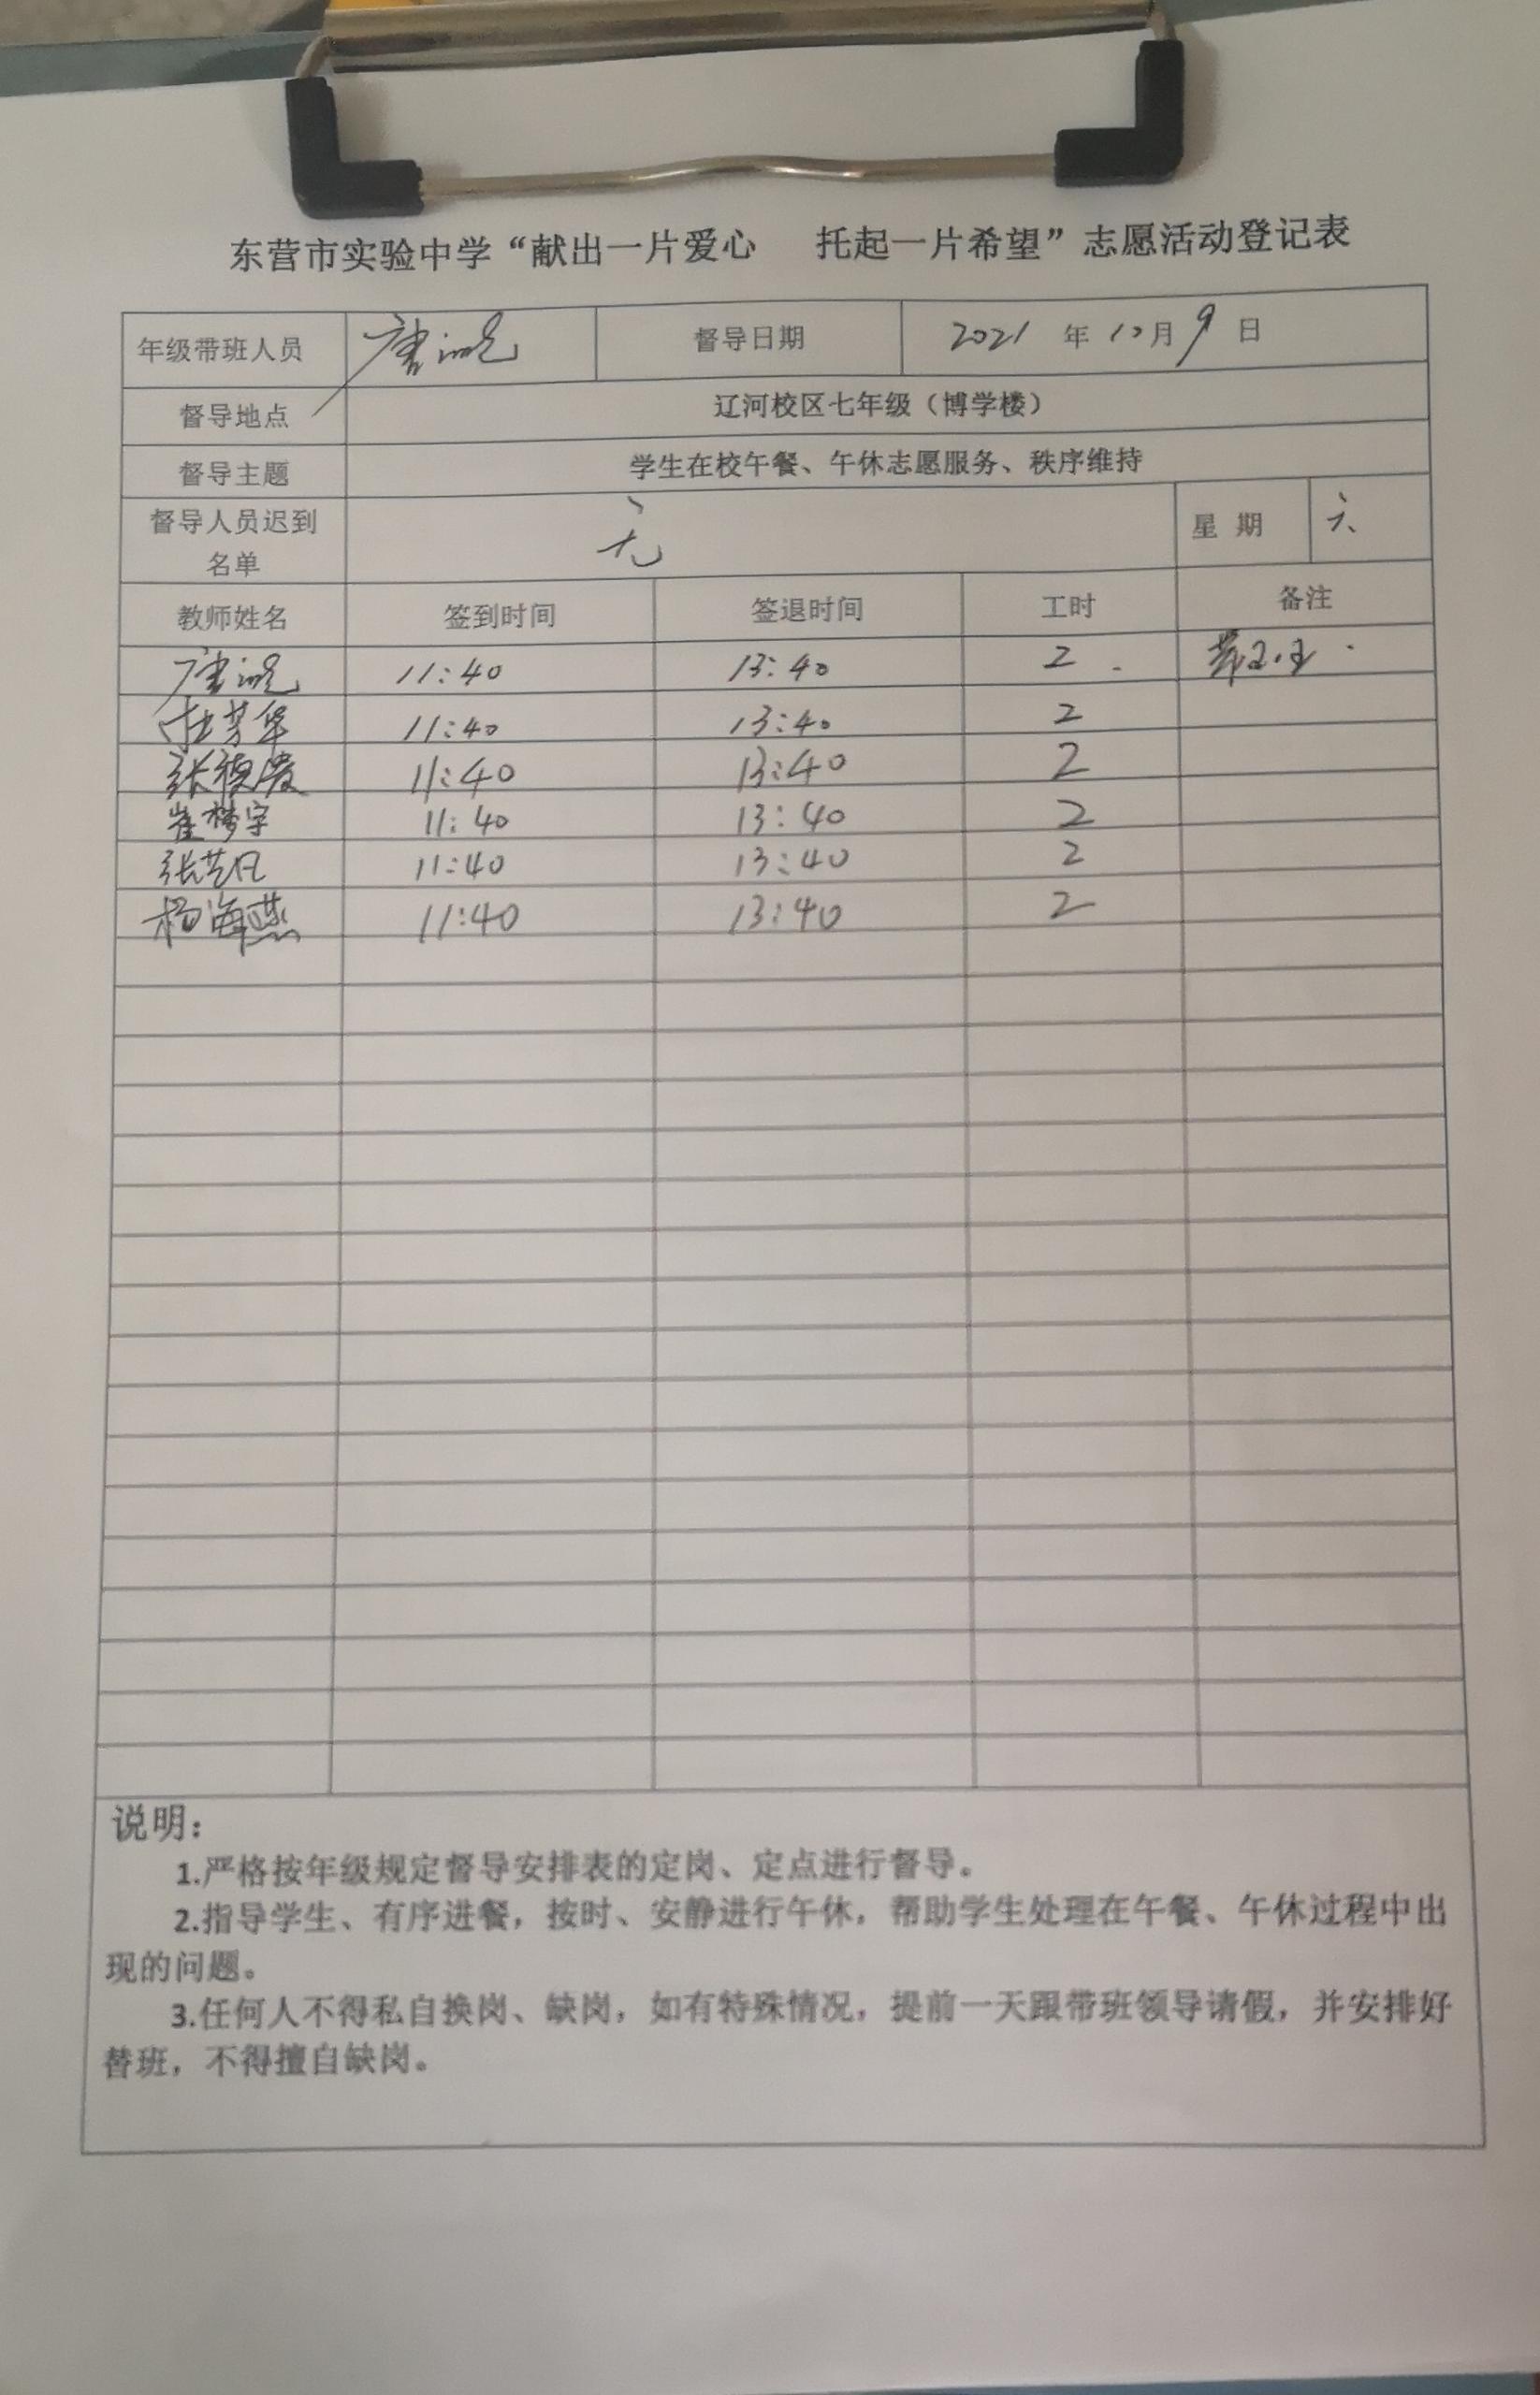 东营市实验中学“献出一片爱心 托起一片希望”志愿活动登记表
年级带班人员 唐 督导日期 2021 年 10 月 9 日
督导地点 辽河校区七年级（博学楼）
督导主题 学生在校午餐、午休志愿服务、秩序维持
督导人员迟到名单 无 星 期 六
教师姓名 签到时间 签退时间 工时 备注
唐 11:40 13:40 2
杜芳华 11:40 13:40 2
张 11:40 13:40 2
崔梦宇 11:40 13:40 2
张艺凡 11:40 13:40 2
杨海燕 11:40 13:40 2
说明：
1.严格按年级规定督导安排表的定岗、定点进行督导。
2.指导学生、有序进餐，按时、安静进行午休，帮助学生处理在午餐、午休过程中出
现的问题。
3.任何人不得私自换岗、缺岗，如有特殊情况，提前一天跟带班领导请假，并安排好
替班，不得擅自缺岗。